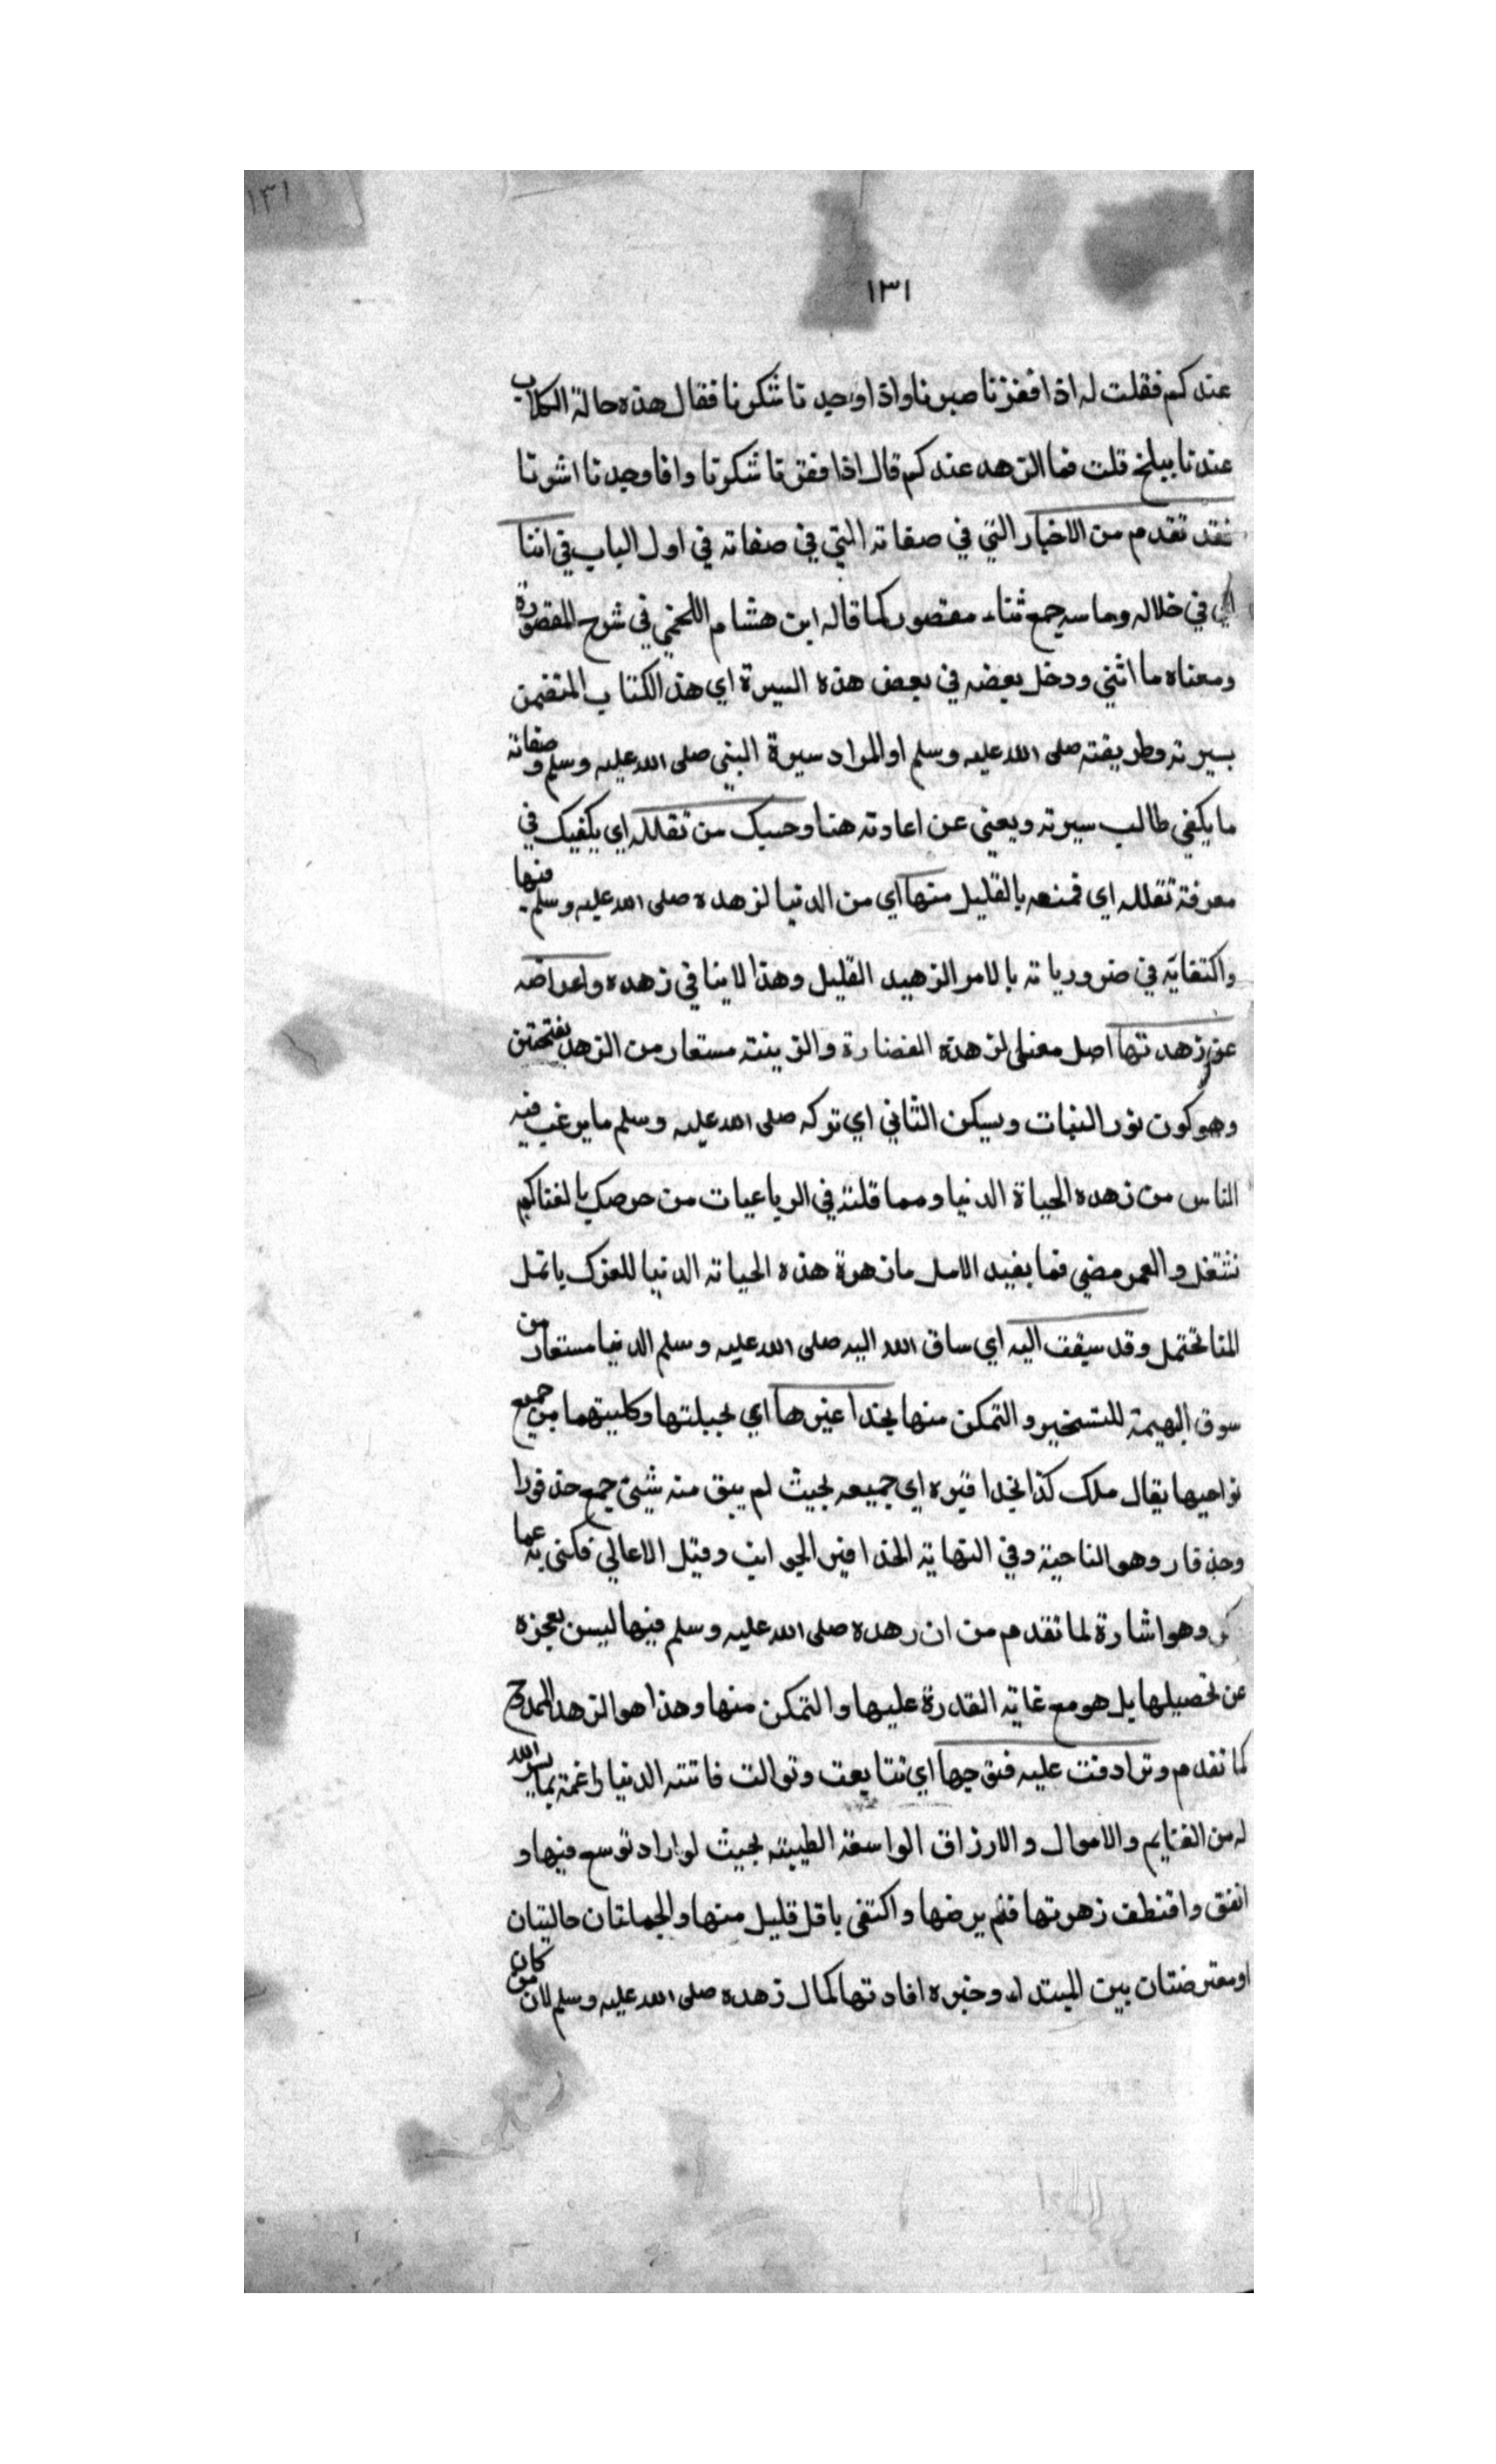 ١٣١
١٣١
عندكم فقلت له اذا فقزنا صبرنا واذا وجدنا شكرنا فقال هذه حالة الكلاب
عندنا ببلخ قلت فما الزهد عندكم قال اذا فقزنا شكرنا واذا وجدنا اثرنا
فقد تقدم من الاخبار التي في صفاته التي في صفاته في اول الباب في اثنا
اي في خلاله وما سه جمع ثناء مقصور كما قاله ابن هشام اللخمي في شرح المقصورة
ومعناه ما اثنى ودخل بعضه في بعض هذه السيرة اي هذا الكتاب المتضمن
بسيرته وطريقته صلى الله عليه وسلم او المراد سيرة النبي صلى الله عليه وسلم وصفاته
ما يكفي طالب سيرته ويغني عن اعادته هنا وحسبك من تقلله اي يكفيك في
معرفة تقلله اي قمنعه بالقليل منها اي من الدنيا لزهده صلى الله عليه وسلم فيها
واكتفايه في ضرورياته بالامر الزهيد القليل وهذا لا ينافي زهده واعراضه
عن زهدتها اصل معنى الزهدة الغضارة والزينته مستعار من الزهد بفتحتين
وهو كون نور النبات ويسكن الثاني اي تركه صلى الله عليه وسلم ما يرغب فيه
الناس من زهده الحياة الدنيا ومما قلته في الرباعيات من حرصك بالغناكم
تشتغل والعمر مضى فما يفيد الامل ما زهرة هذه الحياته الدنيا للعزك يا تمل
المنا تحتمل وقد سيقت اليه اي ساق الله اليه صلى الله عليه وسلم الدنيا مستعار من
سوق البهيمة للتسخير والتمكن منها بحذاغيرها اي بجبلتها وكليتهما من جميع
نواحيها يقال ملك كذا بحذافيره اي جميعه بحيث لم يبق منه شيئ جمع حذفورا
وحذفار وهو الناحية وفي النهاية الحذافير الجوانب وقيل الاعالي فكنى به عما
وهو اشارة لما تقدم من ان زهده صلى الله عليه وسلم فيها ليس بعجزه
عن تحصيلها بل هو مع غاية القدرة عليها والتمكن منها وهذا هو الزهد الممدوح
كما تقدم وترادفت عليه فتوحها اي تتابعت وتوالت فاتته الدنيا راغمة بما يسر الله
له من الغنايم والاموال والارزاق الواسعة الطيبته بحيث لو اراد توسع فيها و
انفق واقتطف زهرتها فلم يرضها واكتفى باقل قليل منها والجملتان حاليتان
او معترضتان بين المبتداء وخبره افادتها كمال زهده صلى الله عليه وسلم لان من كان